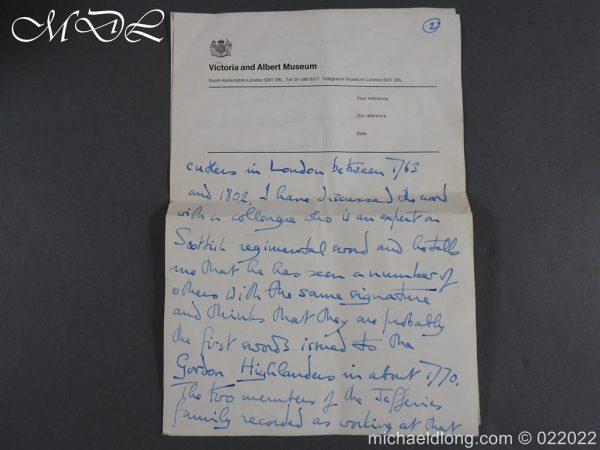 MDL
2
Victoria and Albert Museum
South Kensington London SW7 2RL Tel: 01-589 6371 Telegrams Vicalbert London SW7 2RL
Your reference
Our reference
Date
cutlers in London between 1763
and 1802. I have discussed the sword
with a colleague who is an expert on
Scottish regimental sword and he tells
me that he has seen a number of
others with the same signature
and thinks that they are probably
the first swords issued to the
Gordon Highlanders in about 1770.
The two members of the Jefferies
family recorded as working at that
michaeldlong.com © 022022